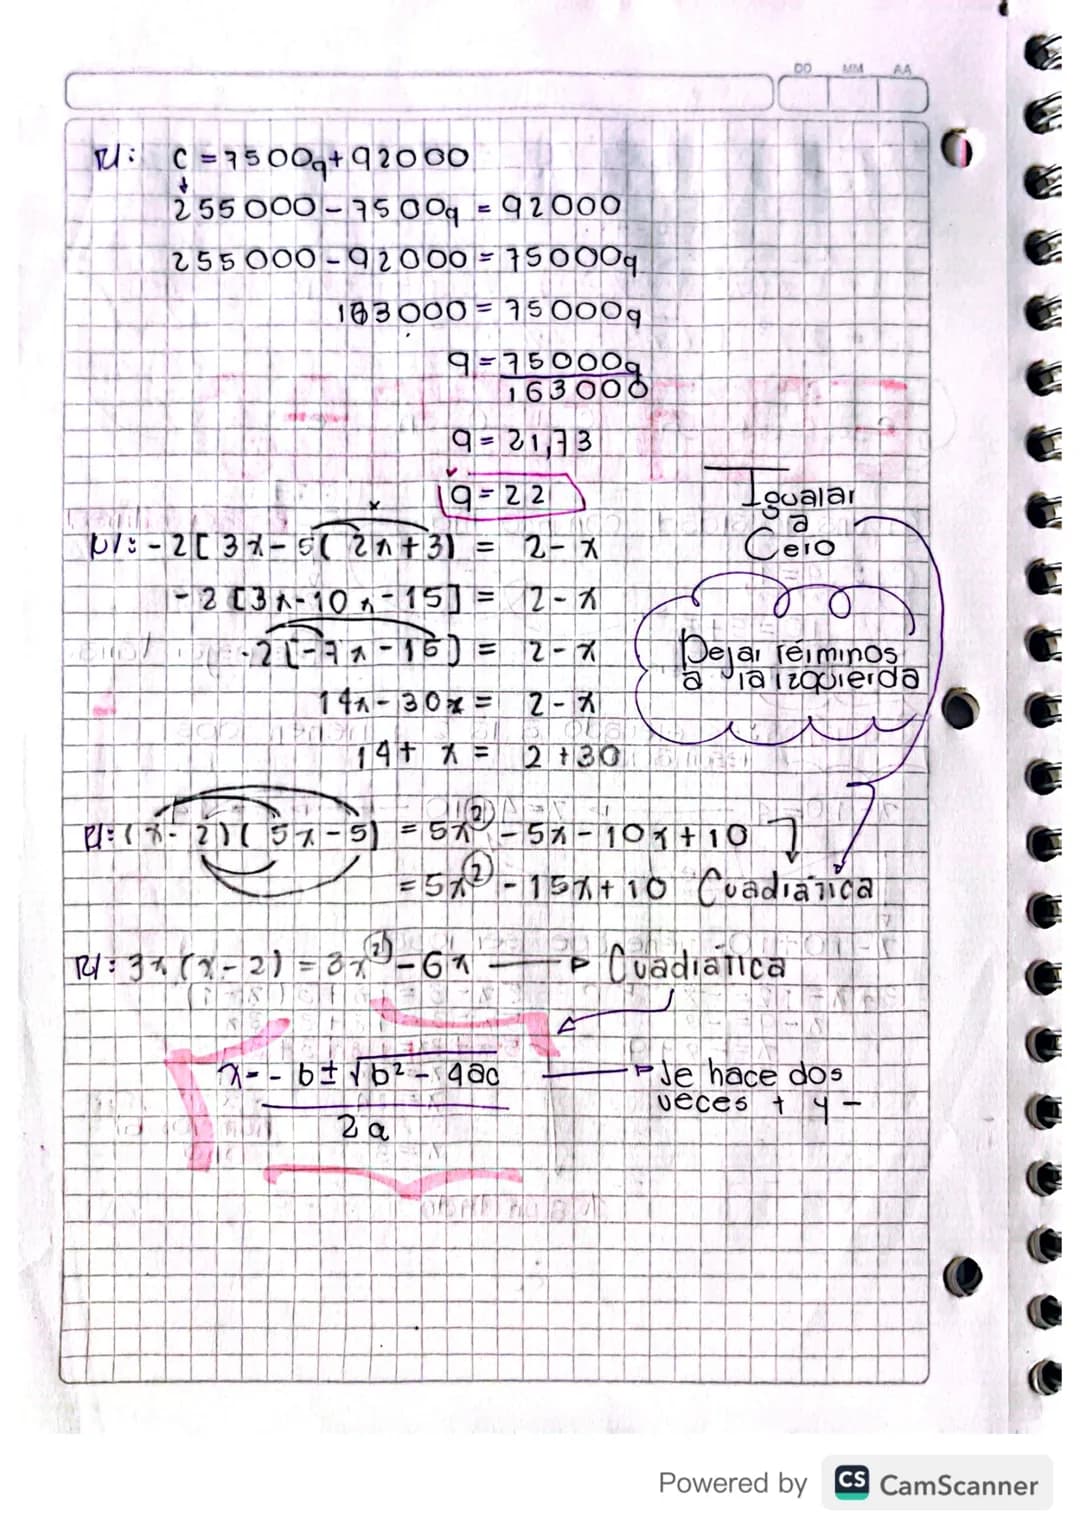 DD MM AA
R/: C = 7500q + 92000
255 000 - 7500q = 92000
255 000 - 92000 = 75000q
163 000 = 75000q
q = 75000q
163000
q = 21,73
q = 22
Igualar
a
Cero
R/: -2[3x - 5(2x + 3) = 2 - x
-2[3x - 10x - 15] = 2 - x
-2[-7x - 15] = 2 - x
Dejar términos
a la izquierda
14x - 30x = 2 - x
14 + x = 2 + 30
R/: (x - 2)(5x - 5) = 5x² - 5x - 10x + 10
= 5x² - 15x + 10 Cuadrática
R/: 3x(x - 2) = 3x² - 6x → Cuadratica
x = -b ± √b² - 4ac
2a
→ Se hace dos
veces + y -
Powered by CS CamScanner